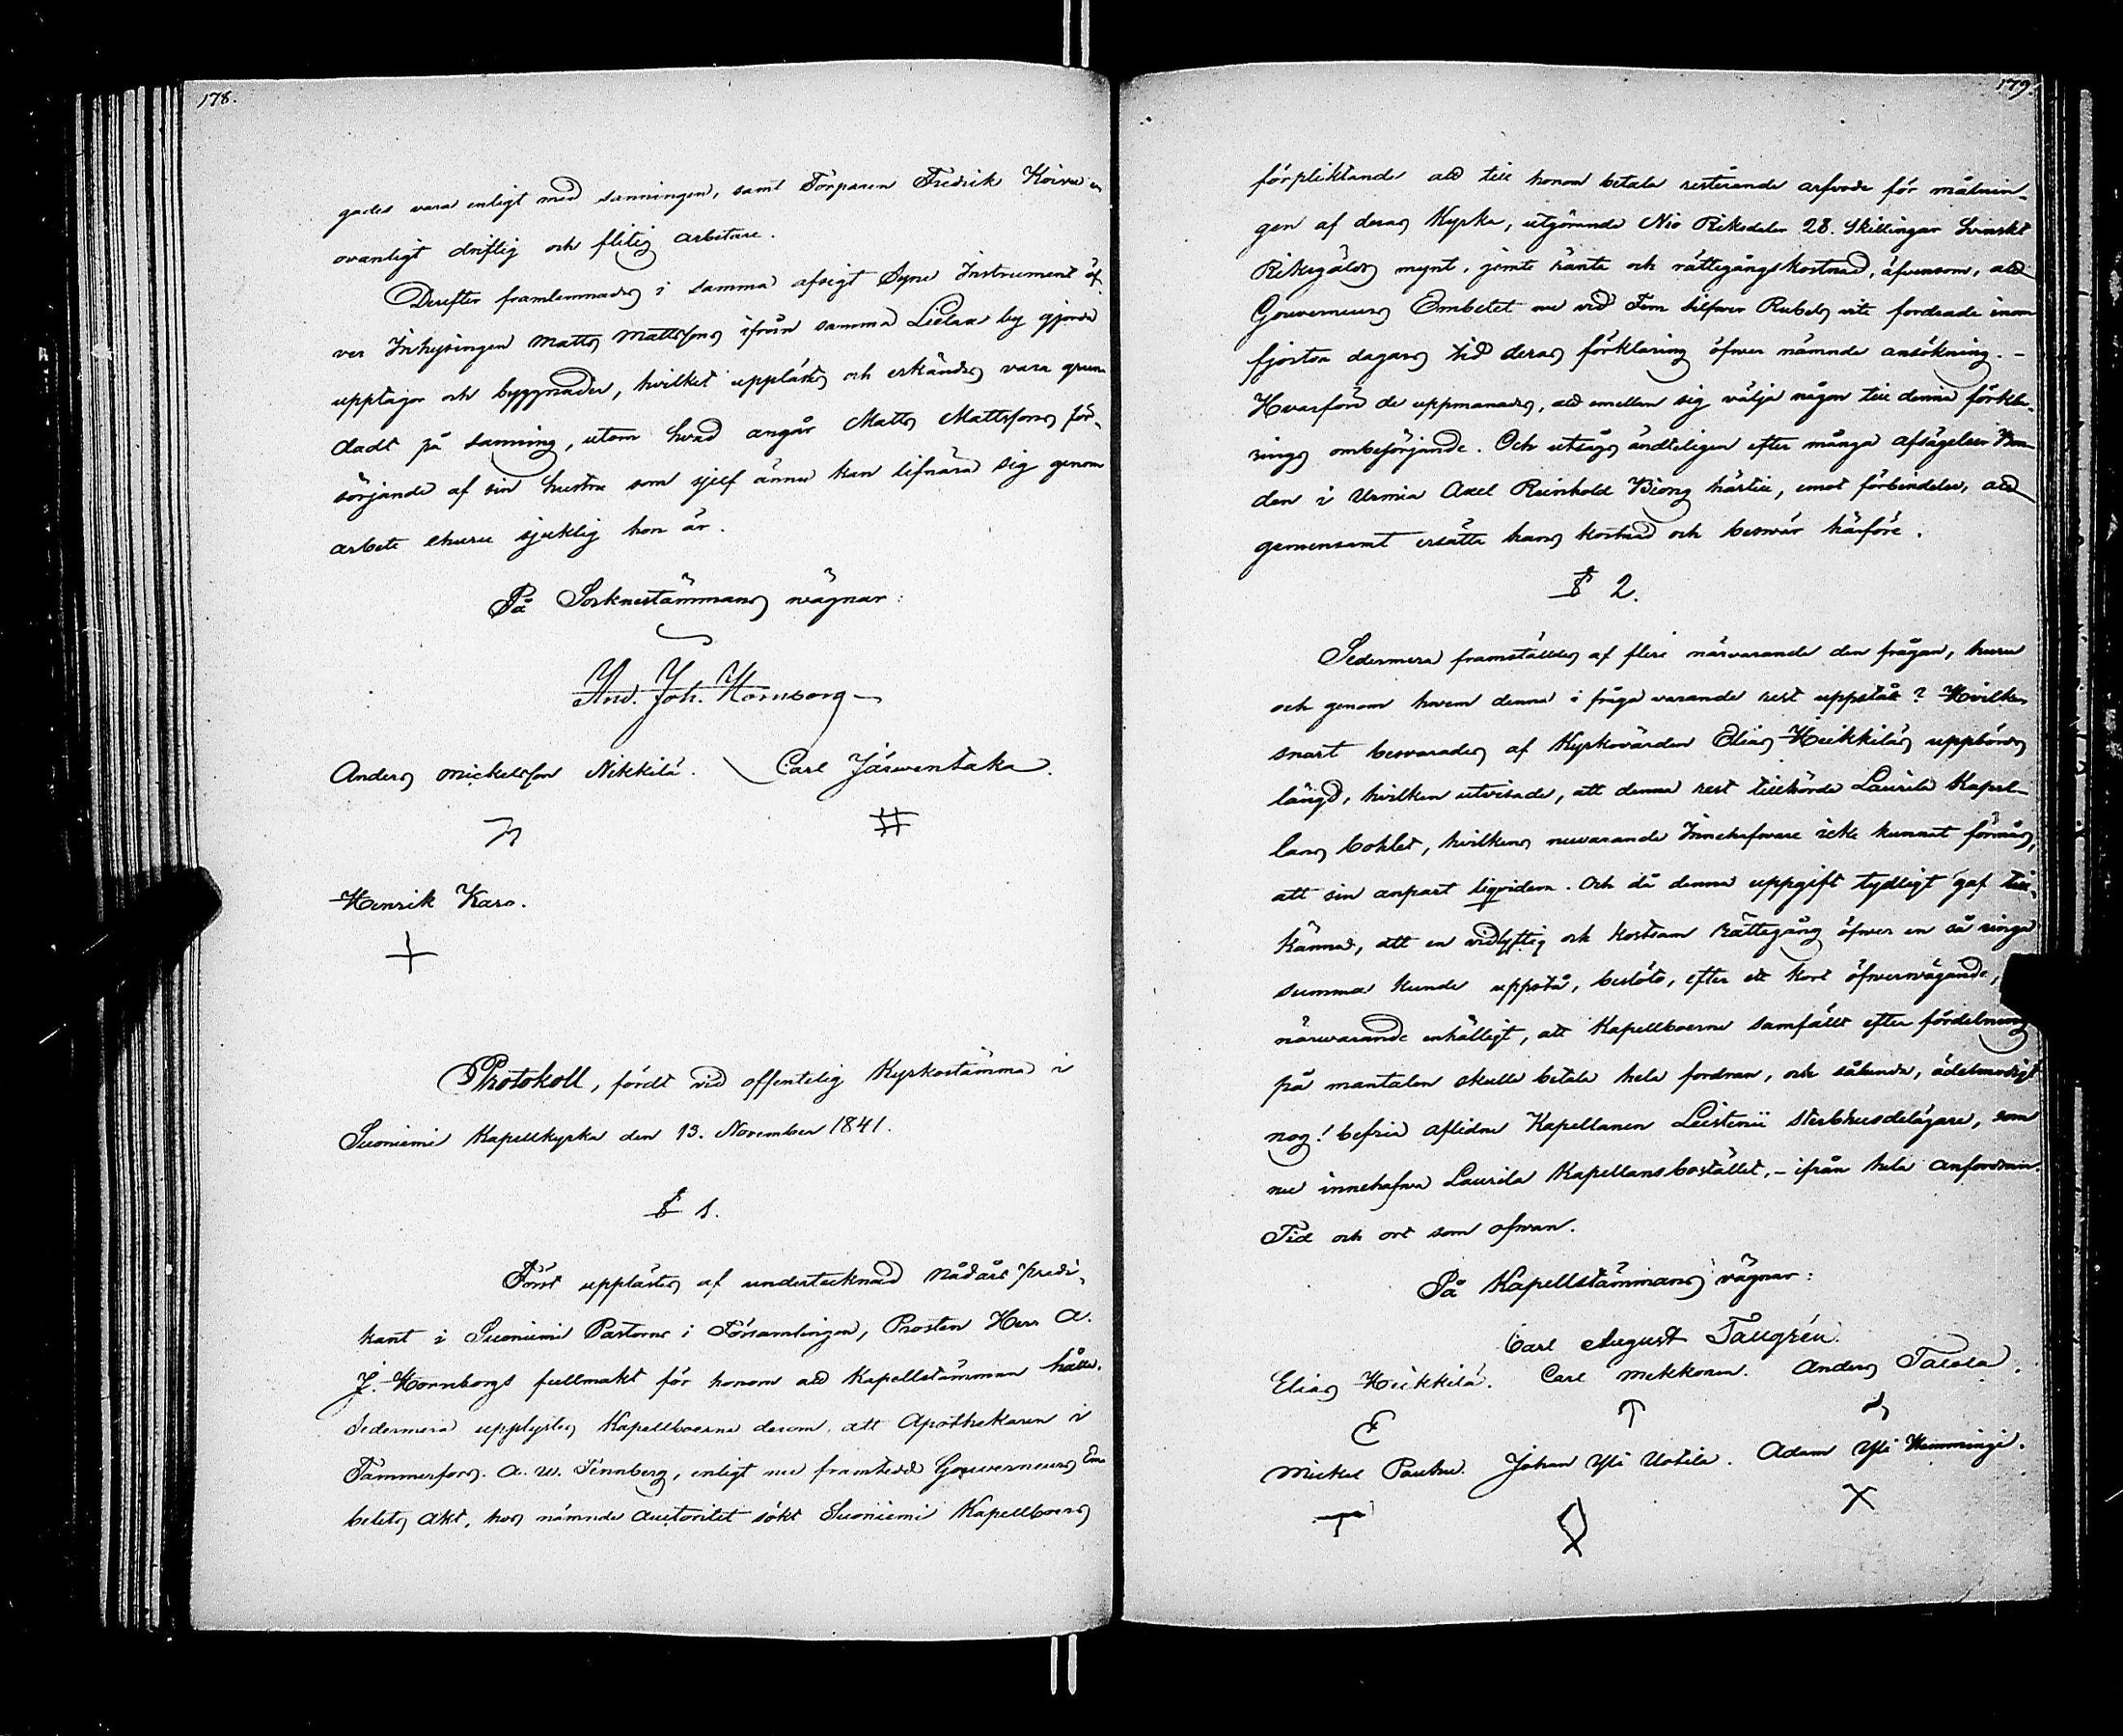 178.
gades vara enligt med sanningen, samt Torparen Fredrik Koivu en
ovanligt driftig och flitig arbetare.
Derefter framlemnades i samma afsigt Syne Instrument öf-
ver Inhysingen Matts Mattssons ifrån samma Lielax by gjorda
upptagor och byggnader, hvilket upplästes och erkändes vara grun-
dadt på sanning, utom hvad angår Matts Mattssons för-
sörjande af sin hustru som sjelf ännu kan lifnära sig genom
arbete ehuru sjuklig hon är.
På Socknestämmans wägnar:
And. Joh. Hornborg
Anders Mickelsson Nikkilä. Carl Järwentaka.
Henrik Karo.
Protokoll, fördt vid offentelig Kyrkostämma i
Suoniemi Kapellkyrka den 13. November 1841.
§ 1.
Först upplästes af undertecknad Nådårs predi-
kant i Suoniemi Pastorns i Församlingen, Prosten Herr A.
J. Hornborgs fullmakt för honom att Kapellstämman hålla.
Sedermera upplystes Kapellboerna derom, att Apothekaren i
Tammerfors. A. W. Tennberg, enligt nu framtedd Gouverneurs Em-
betets Akt, hos nämnde Auctoritet sökt Suoniemi Kapellboers
179.
förpliktande att till honom betala resterande arfvode för målnin-
gen af deras Kyrka, utgörande Nio Riksdaler 28. Skillingar Svenskt
Riksgälds mynt, jemte ränta och rättegångskostnad, äfvensom, att
Gouverneurs Embetet nu vid Fem Silfwer Rubels vite fordrade inom
fjorton dagars tid deras förklaring öfwer nämnde ansökning. -
Hvarföre de uppmanades, att emellan sig välja någon till denna förkla-
rings ombesörjande. Och utsågs ändteligen efter många afsägelser Bon-
den i Urmia Axel Reinhold Biong härtill, emot förbindelse, att
gemensamt ersätta hans kostnad och beswär härföre.
§ 2.
Sedermera framställdes af flere närvarande den frågan, huru
och genom hwem denna i fråga varande rest uppstått? Hvilken
snart besvarades af Kyrkovärden Elias Heikkiläs uppbörds
längd, hvilken utvisade, att denna rest tillhörde Laurila Kapel-
lans bohlet, hvilkens nuvarande Innehafvare icke kunnat förmås,
att sin anpart liqvidera. Och då denna uppgift tydligt gaf till-
känna, att en vidlyftig och kostsam Rättegång öfwer en så ringa
summa kunde uppstå, beslöts, efter ett kort öfwerwägande,
närwarande enhälligt, att Kapellboerne samfällt efter fördelning
på mantalen skulle betala hela fordran, och sålunda, ädelmodigt
nog! befria aflidne Kapellanen Leistenii Sterbhusdelägare, som
nu innehafva Laurila Kapellansbostället, - ifrån hela anfordran.
Tid och ort som ofwan.
På Kapellstämmans vägnar:
Carl August Taugrén.
Elias Heikkilä. Carl Mekkonen. Anders Talola.
Mickel Pauhu. Johan Yli Uotila. Adam Yli Hemmingi.